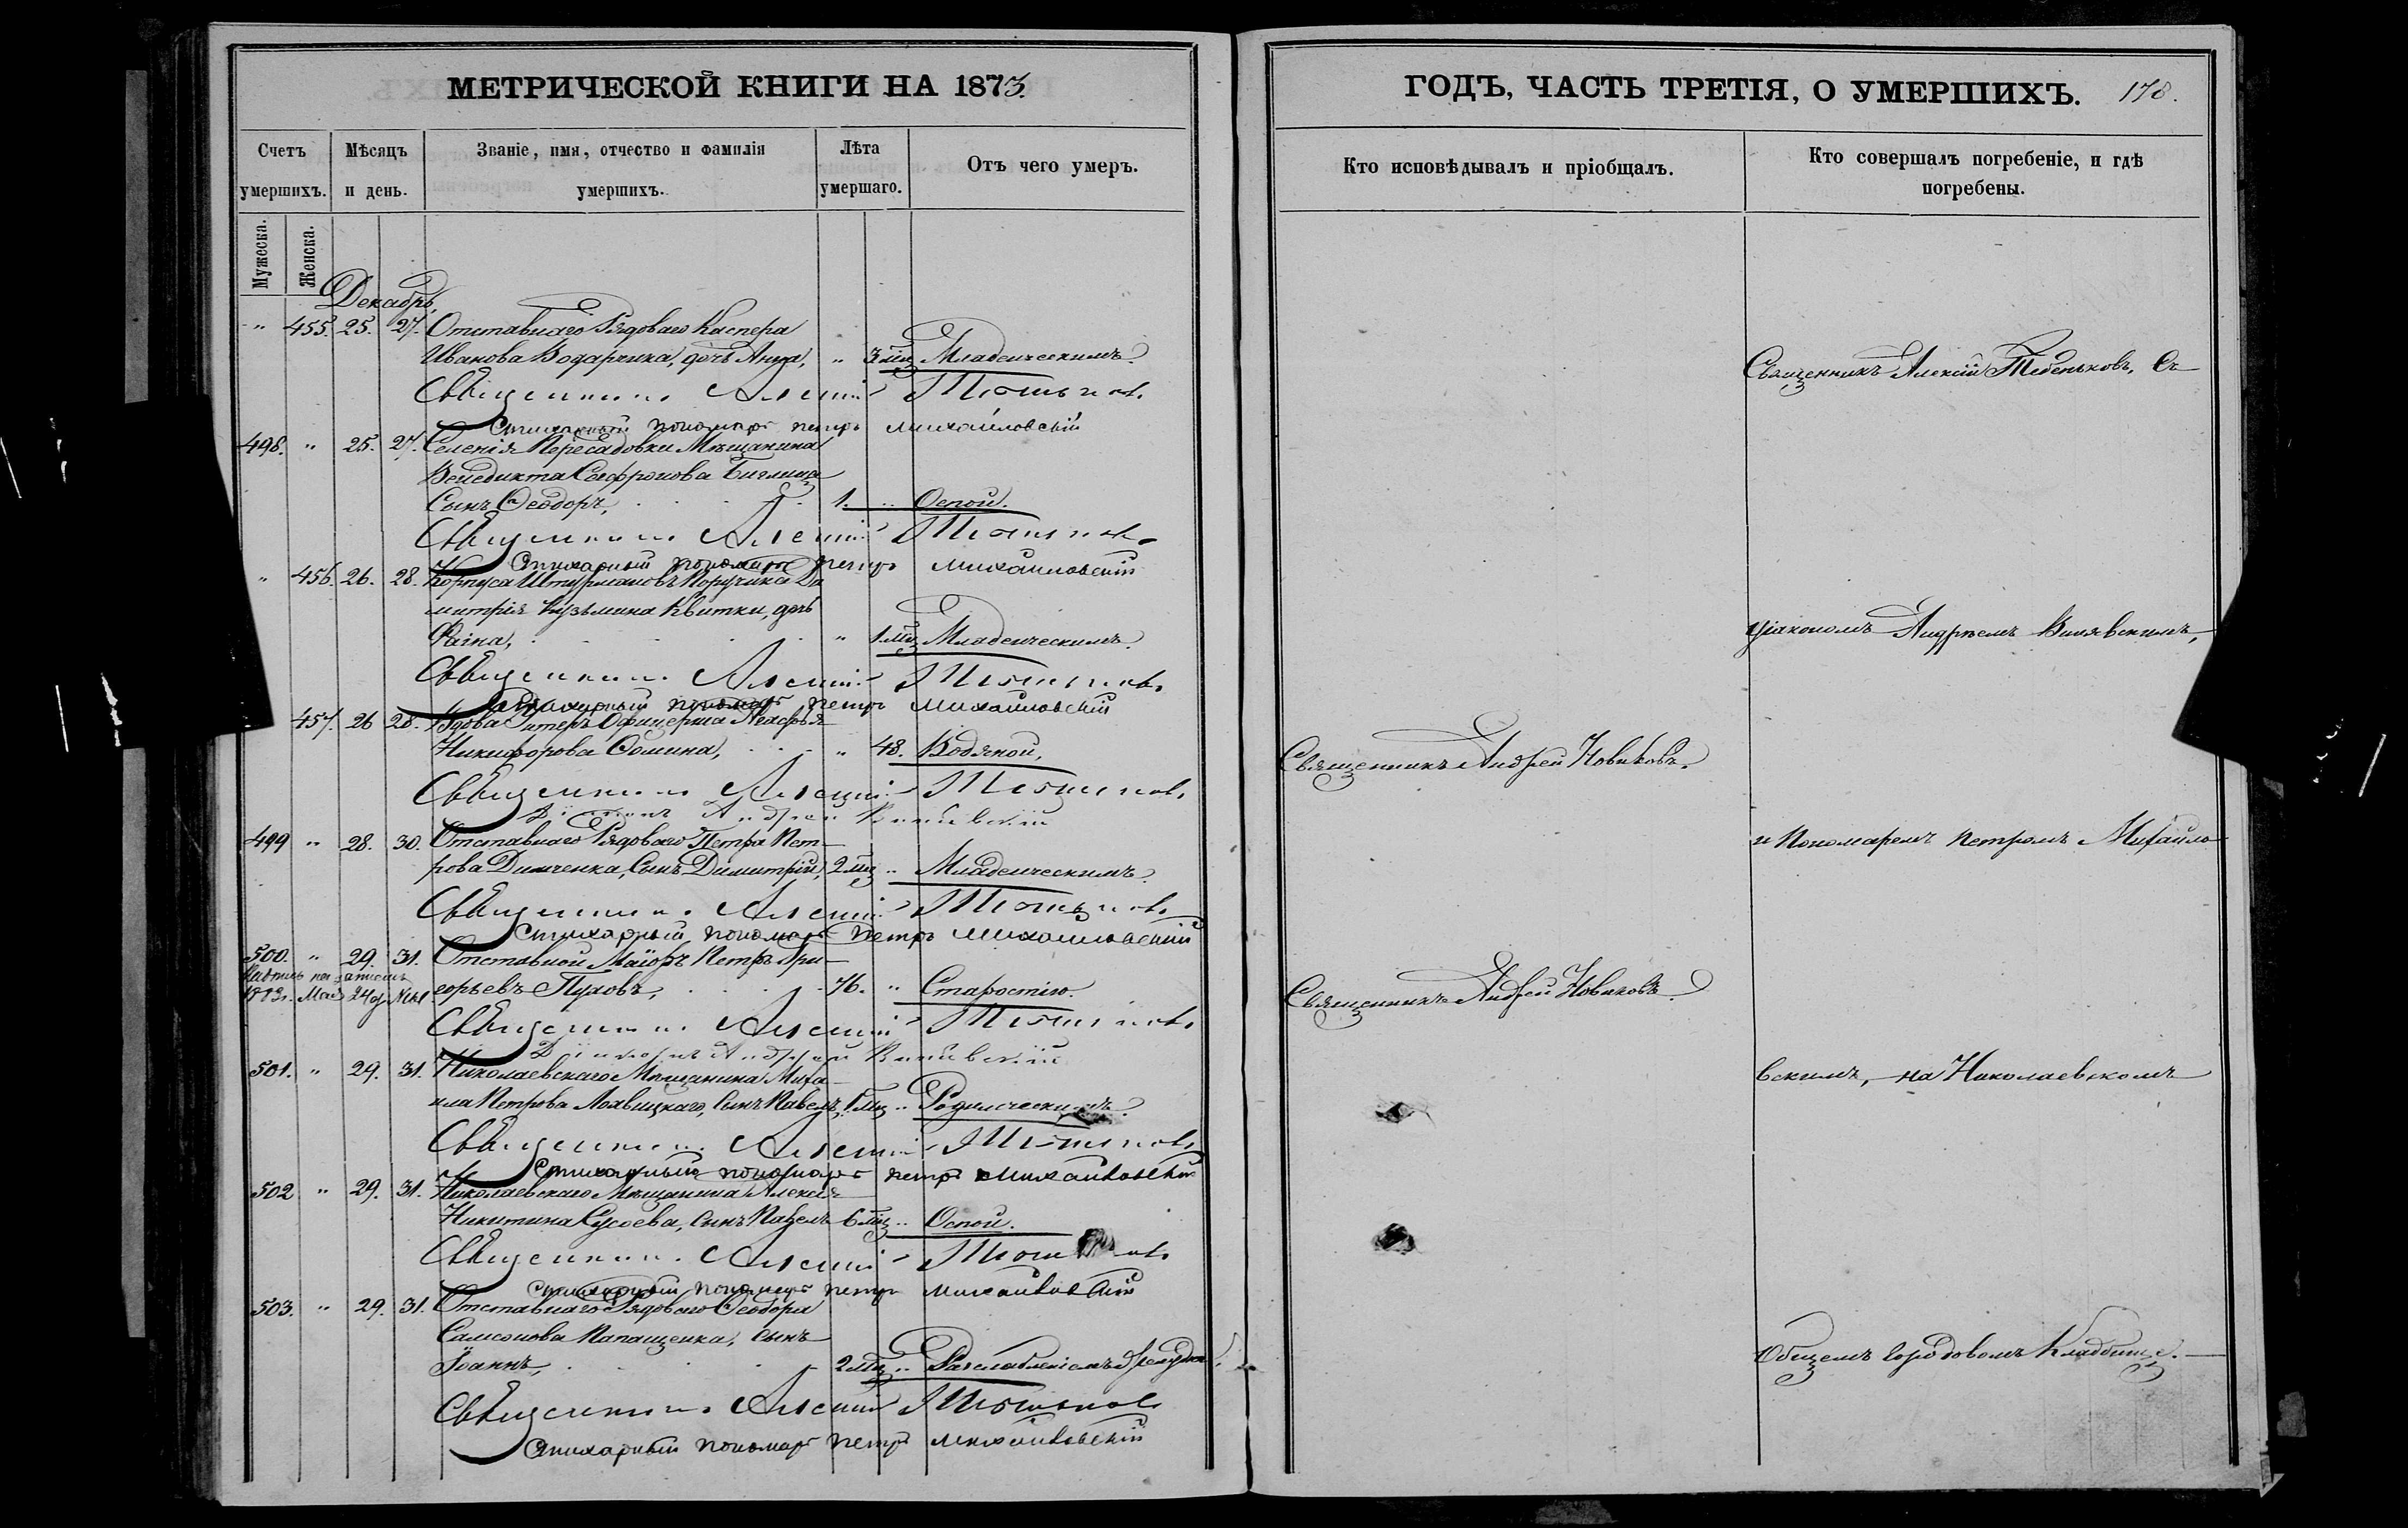 МЕТРИЧЕСКОЙ КНИГИ НА 1873.
Счетъ умершихъ.
Мѣсяцъ и день.
Званіе, имя, отчество и фамилія умершихъ.
Лѣта умершаго.
Отъ чего умеръ.
Мужеска.
Женска.
Декабрь
" 455. 25. 27. Отставнаго Рядоваго Каспера
Иванова Бодарчика, дочь Анна, " 3 мц Младенческимъ.
Священникъ Алексій
Стихарный пономарь Петръ Михайловскій
498. " 25. 27. Селенія Пересадовки Мѣщанина
Венедикта Софронова
Сынъ Ѳеодоръ, 1. " Оспой.
Священникъ Алексій
Стихарный пономарь Петръ Михайловскій
" 456. 26. 28. Корпуса Штурмановъ Поручика Ди
митрія Кузьмина Квитки, дочь
Фаина, " 1 мц Младенческимъ.
Священникъ Алексій
Стихарный пономарь Петръ Михайловскій
457. 26 28. Вдова Унтеръ Офицерша
Никифорова Ѳомина, " 48. Водяной,
Священникъ Алексій
Діаконъ Андрей
499 " 28. 30. Отставнаго Рядоваго Петра Пет-
рова Димченка, Сынъ Димитрій, 2 мц " Младенческимъ.
Священникъ Алексій
Стихарный пономарь Петръ Михайловскій
500. " 29. 31. Отставной Маіоръ Петръ Гри-
горьевъ Пуховъ, 76. " Старостію.
Священникъ Алексій
Діаконъ Андрей
501. " 29. 31. Николаевскаго Мѣщанина Миха-
ила Петрова Лоявицкаго, Сынъ Павелъ, 1 мц " Родимческимъ.
Священникъ Алексій
Стихарный пономарь Петръ Михайловскій
502 " 29. 31. Николаевскаго Мѣщанина Алексія
Никитина Сусоева, сынъ Павелъ 6 мц " Оспой.
Священникъ Алексій
Стихарный пономарь Петръ Михайловскій
503. " 29. 31. Отставнаго Рядоваго Ѳеодора
Самсонова Напащенка, сынъ
Іоаннъ, 2 мц " Разслабленіемъ
Священникъ Алексій
Стихарный пономарь Петръ Михайловскій
ГОДЪ, ЧАСТЬ ТРЕТІЯ, О УМЕРШИХЪ. 178.
Кто исповѣдывалъ и пріобщалъ.
Кто совершалъ погребеніе, и гдѣ погребены.
Священникъ Алексій Тебеньковъ, Съ
діакономъ Андреемъ
Священникъ Андрей Новиковъ.
и Пономаремъ Петромъ Михайло
Священникъ Андрей Новиковъ.
вскимъ, на Николаевскомъ
Общемъ городовомъ Кладбищѣ.